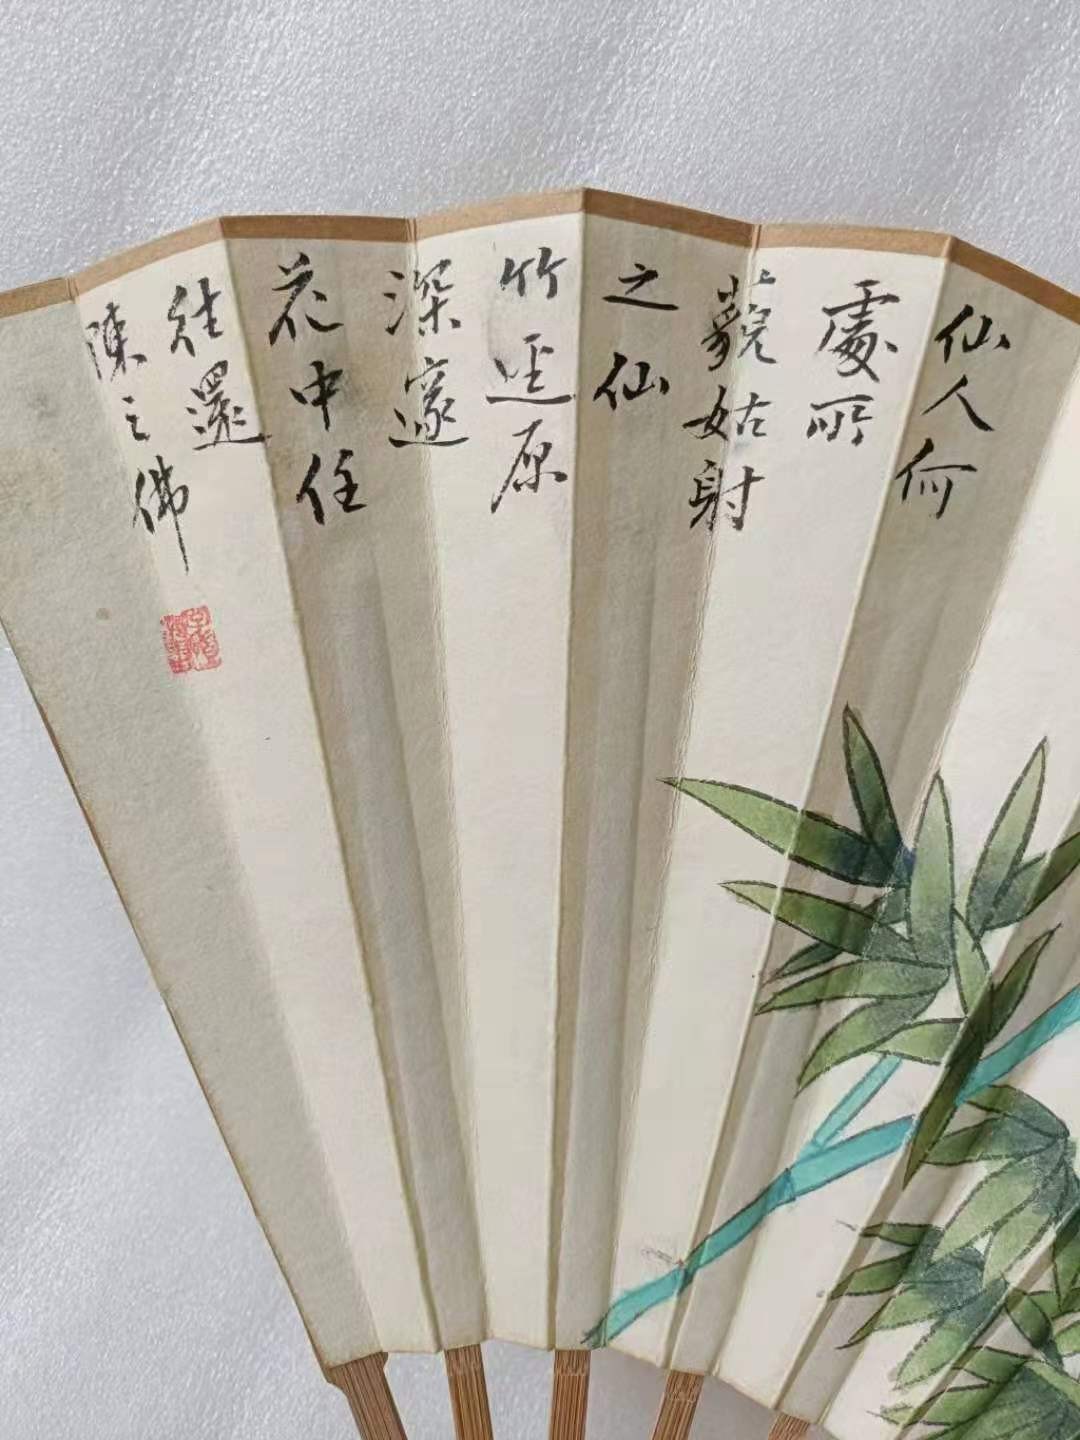 仙人何
處所
藐姑射
之仙
竹逕原
深邃
花中任
往還
陳之佛